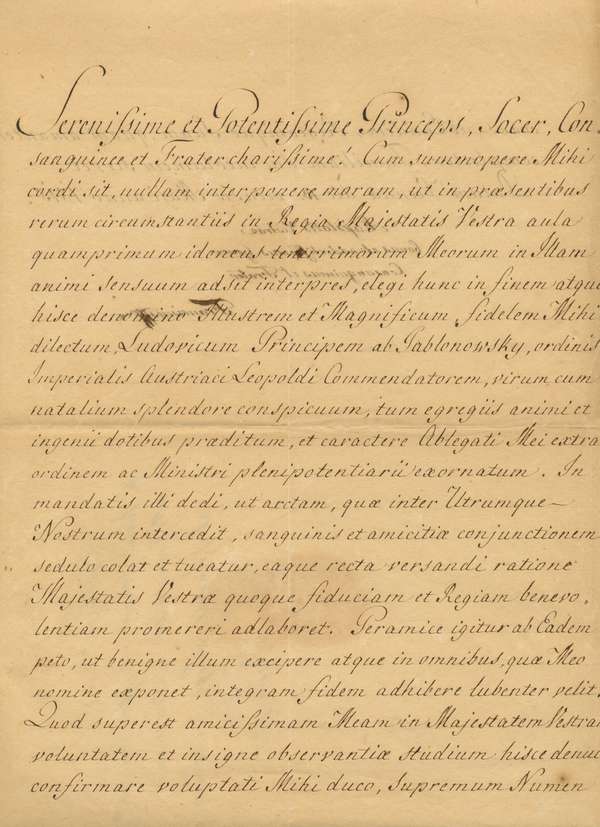 Serenissime et Potentissime Princeps, Socer, Con,
sanguinee et Frater charissime! Cum summopere Mihi
cordi sit, nullam interponere moram, ut in præsentibus
rerum circumstantiis in Regia Majestatis Vestra aula
quamprimum idoneus tenerrimorum Meorum in Illam
animi sensuum adsit interpres, elegi hunc in finem atque
hisce denomino Illustrem et Magnificum fidelem Mihi
dilectum, Ludovicum Principem ab Jablonowsky, ordinis
Imperialis Austriaci Leopoldi Commendatorem, virum, cum
natalium splendore conspicuum, tum egregiis animi et
ingenii dotibus præditum, et caractere Ablegati Mei extra
ordinem ac Ministri plenipotentiarii exornatum. In
mandatis illi dedi, ut arctam, quæ inter Utrumque
Nostrum intercedit, sanguinis et amicitiæ conjunctionem
sedulo colat et tueatur, eaque recta versandi ratione
Majestatis Vestræ quoque fiduciam et Regiam benevo,
lentiam promereri adlaboret. Peramice igitur ab Eadem
peto, ut benigne illum excipere atque in omnibus, quæ Meo
nomine exponet, integram fidem adhibere lubenter velit.
Quod superest amicissimam Meam in Majestatem Vestram
voluntatem et insigne observantiæ studium hisce denuo
confirmare voluptati Mihi duco, Supremum Numen